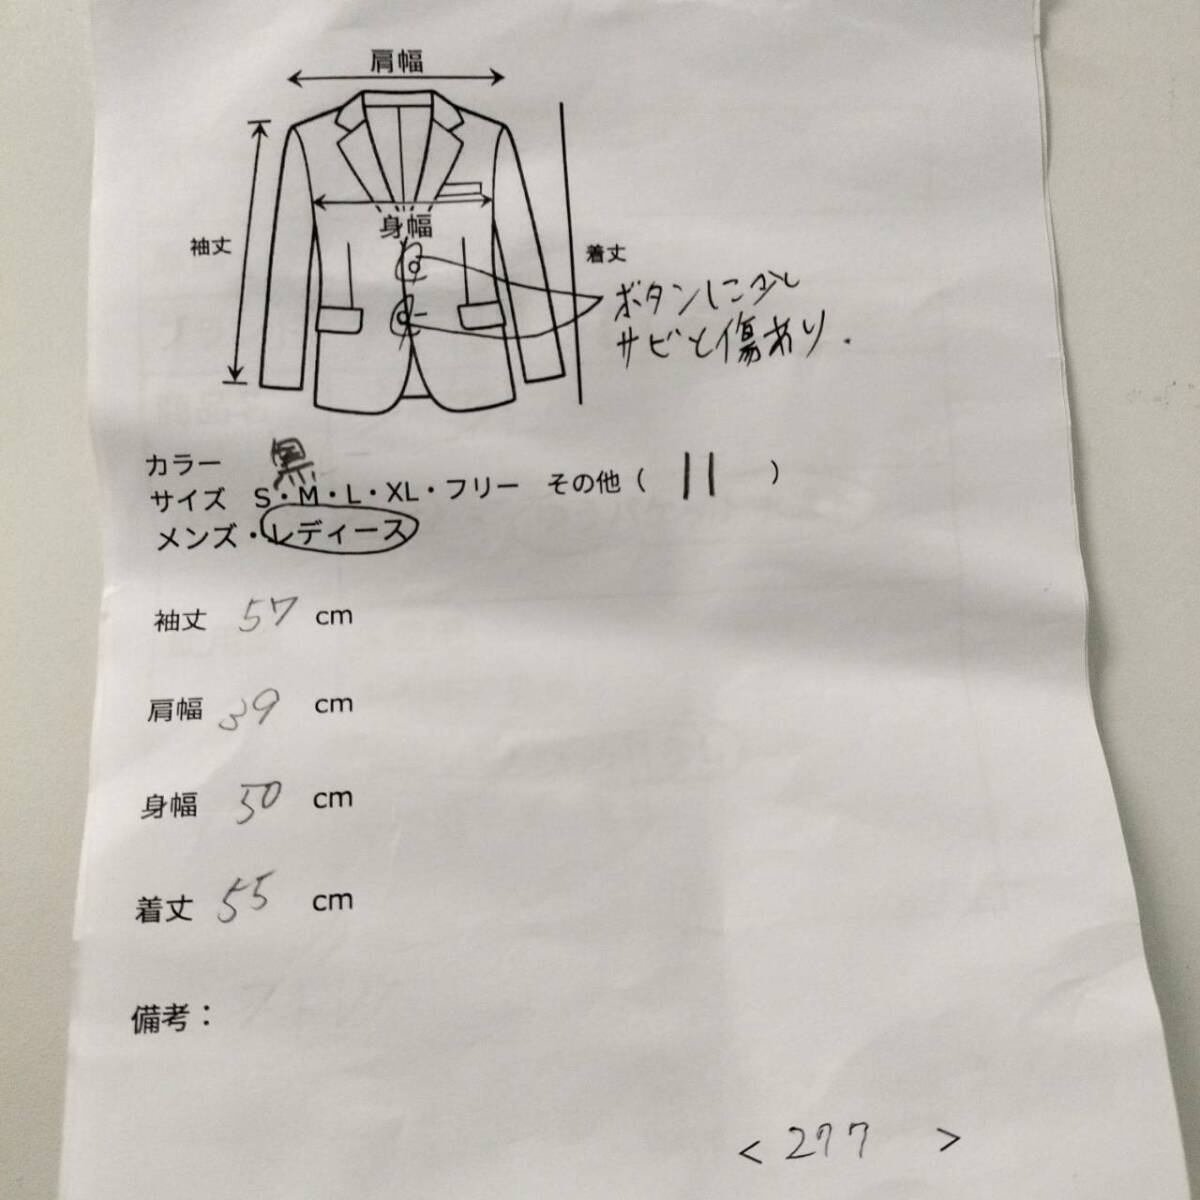 肩幅
身幅
袖丈
着丈
ボタンに少し
サビと傷あり.
カラー 黒
サイズ S・M・L・XL・フリー その他( 11 )
メンズ・レディース
袖丈 57 cm
肩幅 39 cm
身幅 50 cm
着丈 55 cm
備考:
<277>